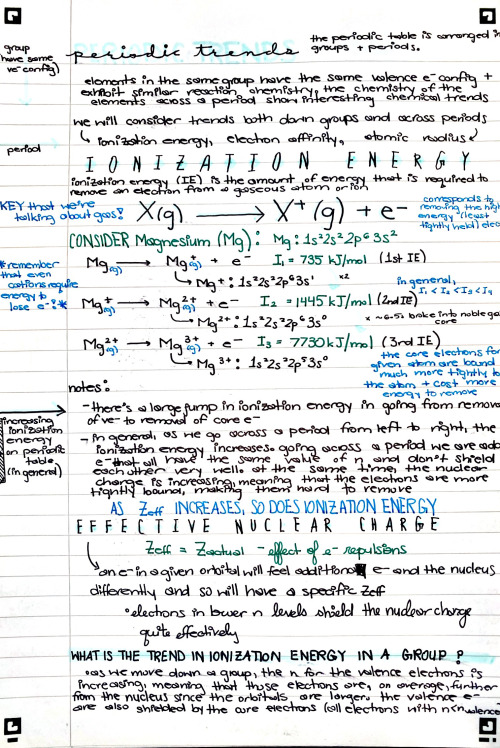 periodic trends
the periodic table is arranged in
groups + periods.
group
have same
ve- config)
elements in the same group have the same valence e- config +
exhibit similar reaction chemistry, the chemistry of the
elements across a period show interesting chemical trends
we will consider trends both down groups and across periods
period
ionization energy, electron affinity, atomic radius
IONIZATION ENERGY
ionization energy (IE) is the amount of energy that is required to
remove an electron from a gaseous atom or ion
KEY that we're
talking about gas!
X(g) → X+(g) + e-
corresponds to
removing the high
energy (least
tightly held) elec
CONSIDER Magnesium (Mg): Mg: 1s²2s²2p⁶3s²
Mg(g) → Mg+(g) + e- I₁ = 735 kJ/mol (1st IE)
Mg+: 1s²2s²2p⁶3s¹
x2
*remember
that even
cations require
energy to
lose e-!*
in general,
I₁ < I₂ < I₃ < I₄
Mg+(g) → Mg2+(g) + e- I₂ = 1445 kJ/mol (2nd IE)
Mg2+: 1s²2s²2p⁶3s⁰
x ~6-5x broke into noble gas
core
Mg2+(g) → Mg3+(g) + e- I₃ = 7730 kJ/mol (3rd IE)
Mg3+: 1s²2s²2p⁵3s⁰
the core electrons for
given atom are bound
much more tightly to
the atom + cost more
energy to remove
notes:
- there's a large jump in ionization energy in going from remova
of ve- to removal of core e-
increasing
ionization
energy
on periodic
table,
(in general)
- in general, as we go across a period from left to right, the
ionization energy increases. going across a period we are add
e- that all have the same value of n and don't shield
each other very well. at the same time, the nuclear
charge is increasing, meaning that the electrons are more
tightly bound, making them hard to remove
AS Zeff INCREASES, SO DOES IONIZATION ENERGY
EFFECTIVE NUCLEAR CHARGE
Zeff = Zactual - effect of e- repulsions
an e- in a given orbital will feel additional e- and the nucleus
differently and so will have a specific Zeff
• electrons in lower n levels shield the nuclear charge
quite effectively
WHAT IS THE TREND IN IONIZATION ENERGY IN A GROUP?
• as we move down a group, the n for the valence electrons is
increasing, meaning that those electrons are, on average, further
from the nucleus since the orbitals are larger. the valence e-
are also shielded by the core electrons (all electrons with n<nvalence